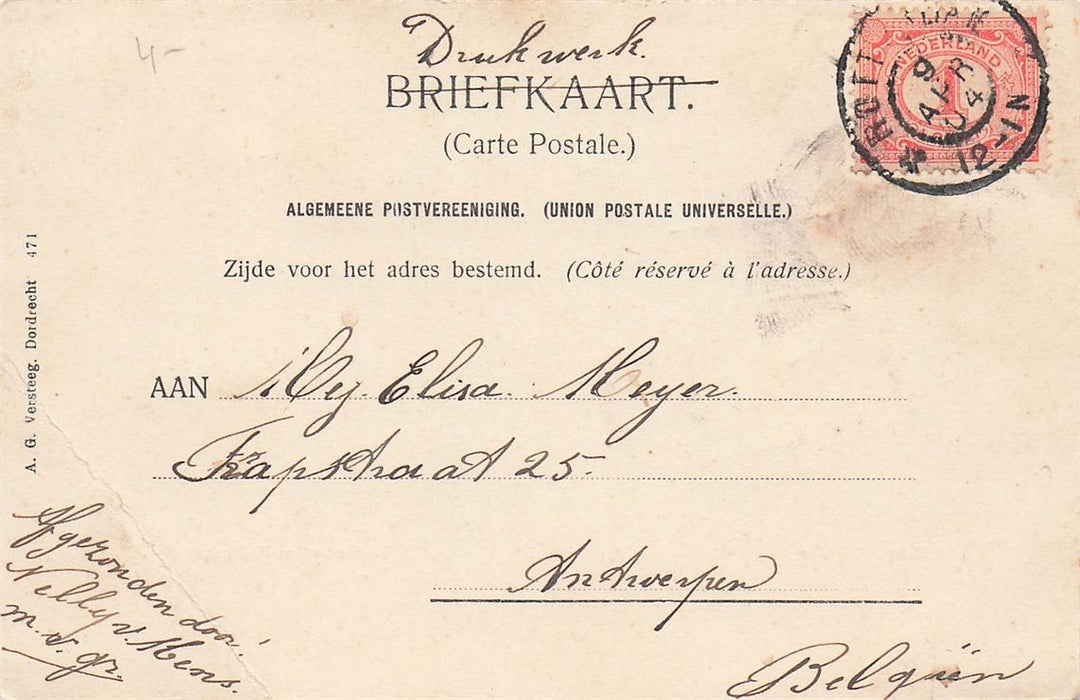 4-
Drukwerk.
BRIEFKAART.
(Carte Postale.)
NEDERLAND
1
ROTT
9 APR 04
12-1N
ALGEMEENE POSTVEREENIGING. (UNION POSTALE UNIVERSELLE.)
Zijde voor het adres bestemd. (Côté réservé à l'adresse.)
AAN Mej. Elisa Meyer.
straat 25.
Antwerpen
Belgiën
A. G. Versteeg. Dordrecht 471
Afgezonden door:
Nelly v. Mens.
m. v. gr.